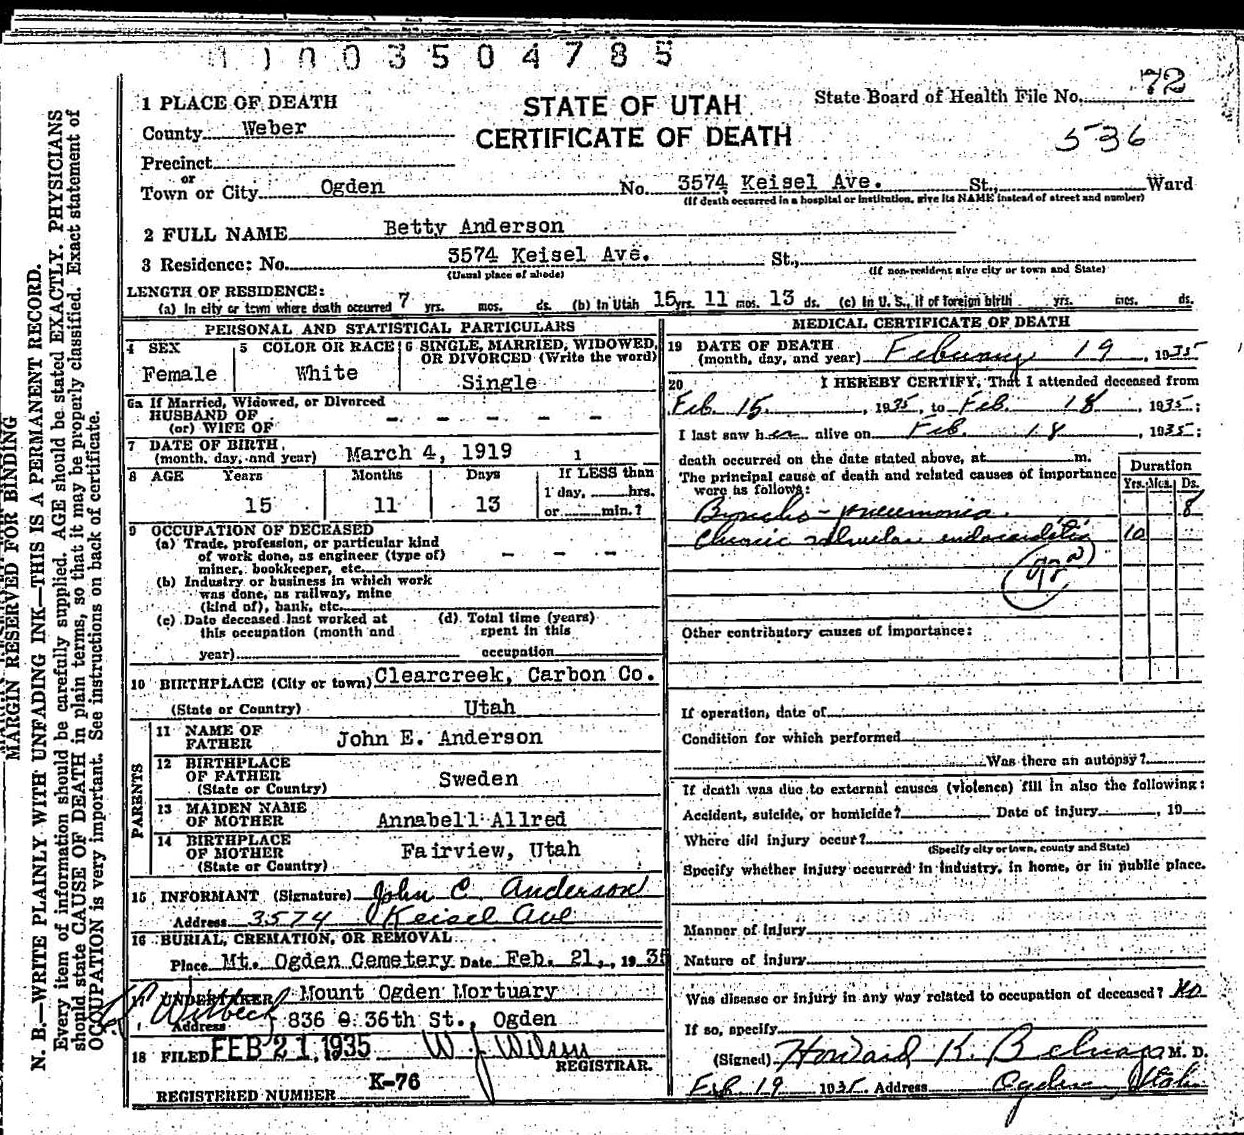 1 1 0 0 3 5 0 4 7 8 5
MARGIN RESERVED FOR BINDING
N. B.—WRITE PLAINLY WITH UNFADING INK—THIS IS A PERMANENT RECORD.
Every item of information should be carefully supplied. AGE should be stated EXACTLY. PHYSICIANS
should state CAUSE OF DEATH in plain terms, so that it may be properly classified. Exact statement of
OCCUPATION is very important. See instructions on back of certificate.
STATE OF UTAH
CERTIFICATE OF DEATH
State Board of Health File No. 72
536
1 PLACE OF DEATH
County Weber
Precinct
or
Town or City Ogden No. 3574 Keisel Ave. St., Ward
(If death occurred in a hospital or institution, give its NAME instead of street and number)
2 FULL NAME Betty Anderson
3 Residence: No. 3574 Keisel Ave. St.,
(Usual place of abode) (If non-resident give city or town and State)
LENGTH OF RESIDENCE:
(a) In city or town where death occurred 7 yrs. mos. ds. (b) In Utah 15 yrs. 11 mos. 13 ds. (c) In U. S., if of foreign birth yrs. mos. ds.
PERSONAL AND STATISTICAL PARTICULARS
4 SEX
Female
5 COLOR OR RACE
White
6 SINGLE, MARRIED, WIDOWED,
OR DIVORCED (Write the word)
Single
6a If Married, Widowed, or Divorced
HUSBAND OF
(or) WIFE OF - - - - - -
7 DATE OF BIRTH
(month, day, and year) March 4, 1919 1
8 AGE Years Months Days If LESS than
15 11 13 1 day, hrs.
or min.?
9 OCCUPATION OF DECEASED
(a) Trade, profession, or particular kind
of work done, as engineer (type of)
miner, bookkeeper, etc. - - - -
(b) Industry or business in which work
was done, as railway, mine
(kind of), bank, etc.
(c) Date deceased last worked at
this occupation (month and
year)
(d) Total time (years)
spent in this
occupation
10 BIRTHPLACE (City or town) Clearcreek, Carbon Co.
(State or Country) Utah
PARENTS
11 NAME OF
FATHER John E. Anderson
12 BIRTHPLACE
OF FATHER
(State or Country) Sweden
13 MAIDEN NAME
OF MOTHER Annabell Allred
14 BIRTHPLACE
OF MOTHER
(State or Country) Fairview, Utah
15 INFORMANT (Signature) John E. Anderson
Address 3574 Keisel Ave
16 BURIAL, CREMATION, OR REMOVAL
Place Mt. Ogden Cemetery Date Feb. 21, , 1935
17 UNDERTAKER Mount Ogden Mortuary
Address 836 36th St., Ogden
18 FILED FEB 21, 1935
REGISTRAR.
REGISTERED NUMBER K-76
MEDICAL CERTIFICATE OF DEATH
19 DATE OF DEATH
(month, day, and year) February 19 , 1935
20 I HEREBY CERTIFY, That I attended deceased from
Feb. 15 , 1935, to Feb. 18 , 1935;
I last saw her alive on Feb. 18 , 1935;
death occurred on the date stated above, at m.
The principal cause of death and related causes of importance
were as follows:
Duration
Yrs. Mos. Ds.
Broncho-pneumonia. 8
Chronic valvular endocarditis 10
Other contributory causes of importance:
If operation, date of
Condition for which performed
Was there an autopsy?
If death was due to external causes (violence) fill in also the following:
Accident, suicide, or homicide? Date of injury , 19
Where did injury occur?
(Specify city or town, county and State)
Specify whether injury occurred in industry, in home, or in public place.
Manner of injury
Nature of injury
Was disease or injury in any way related to occupation of deceased? No
If so, specify
(Signed) Howard K. Belnap M. D.
Feb 19 1935 Address Ogden, Utah